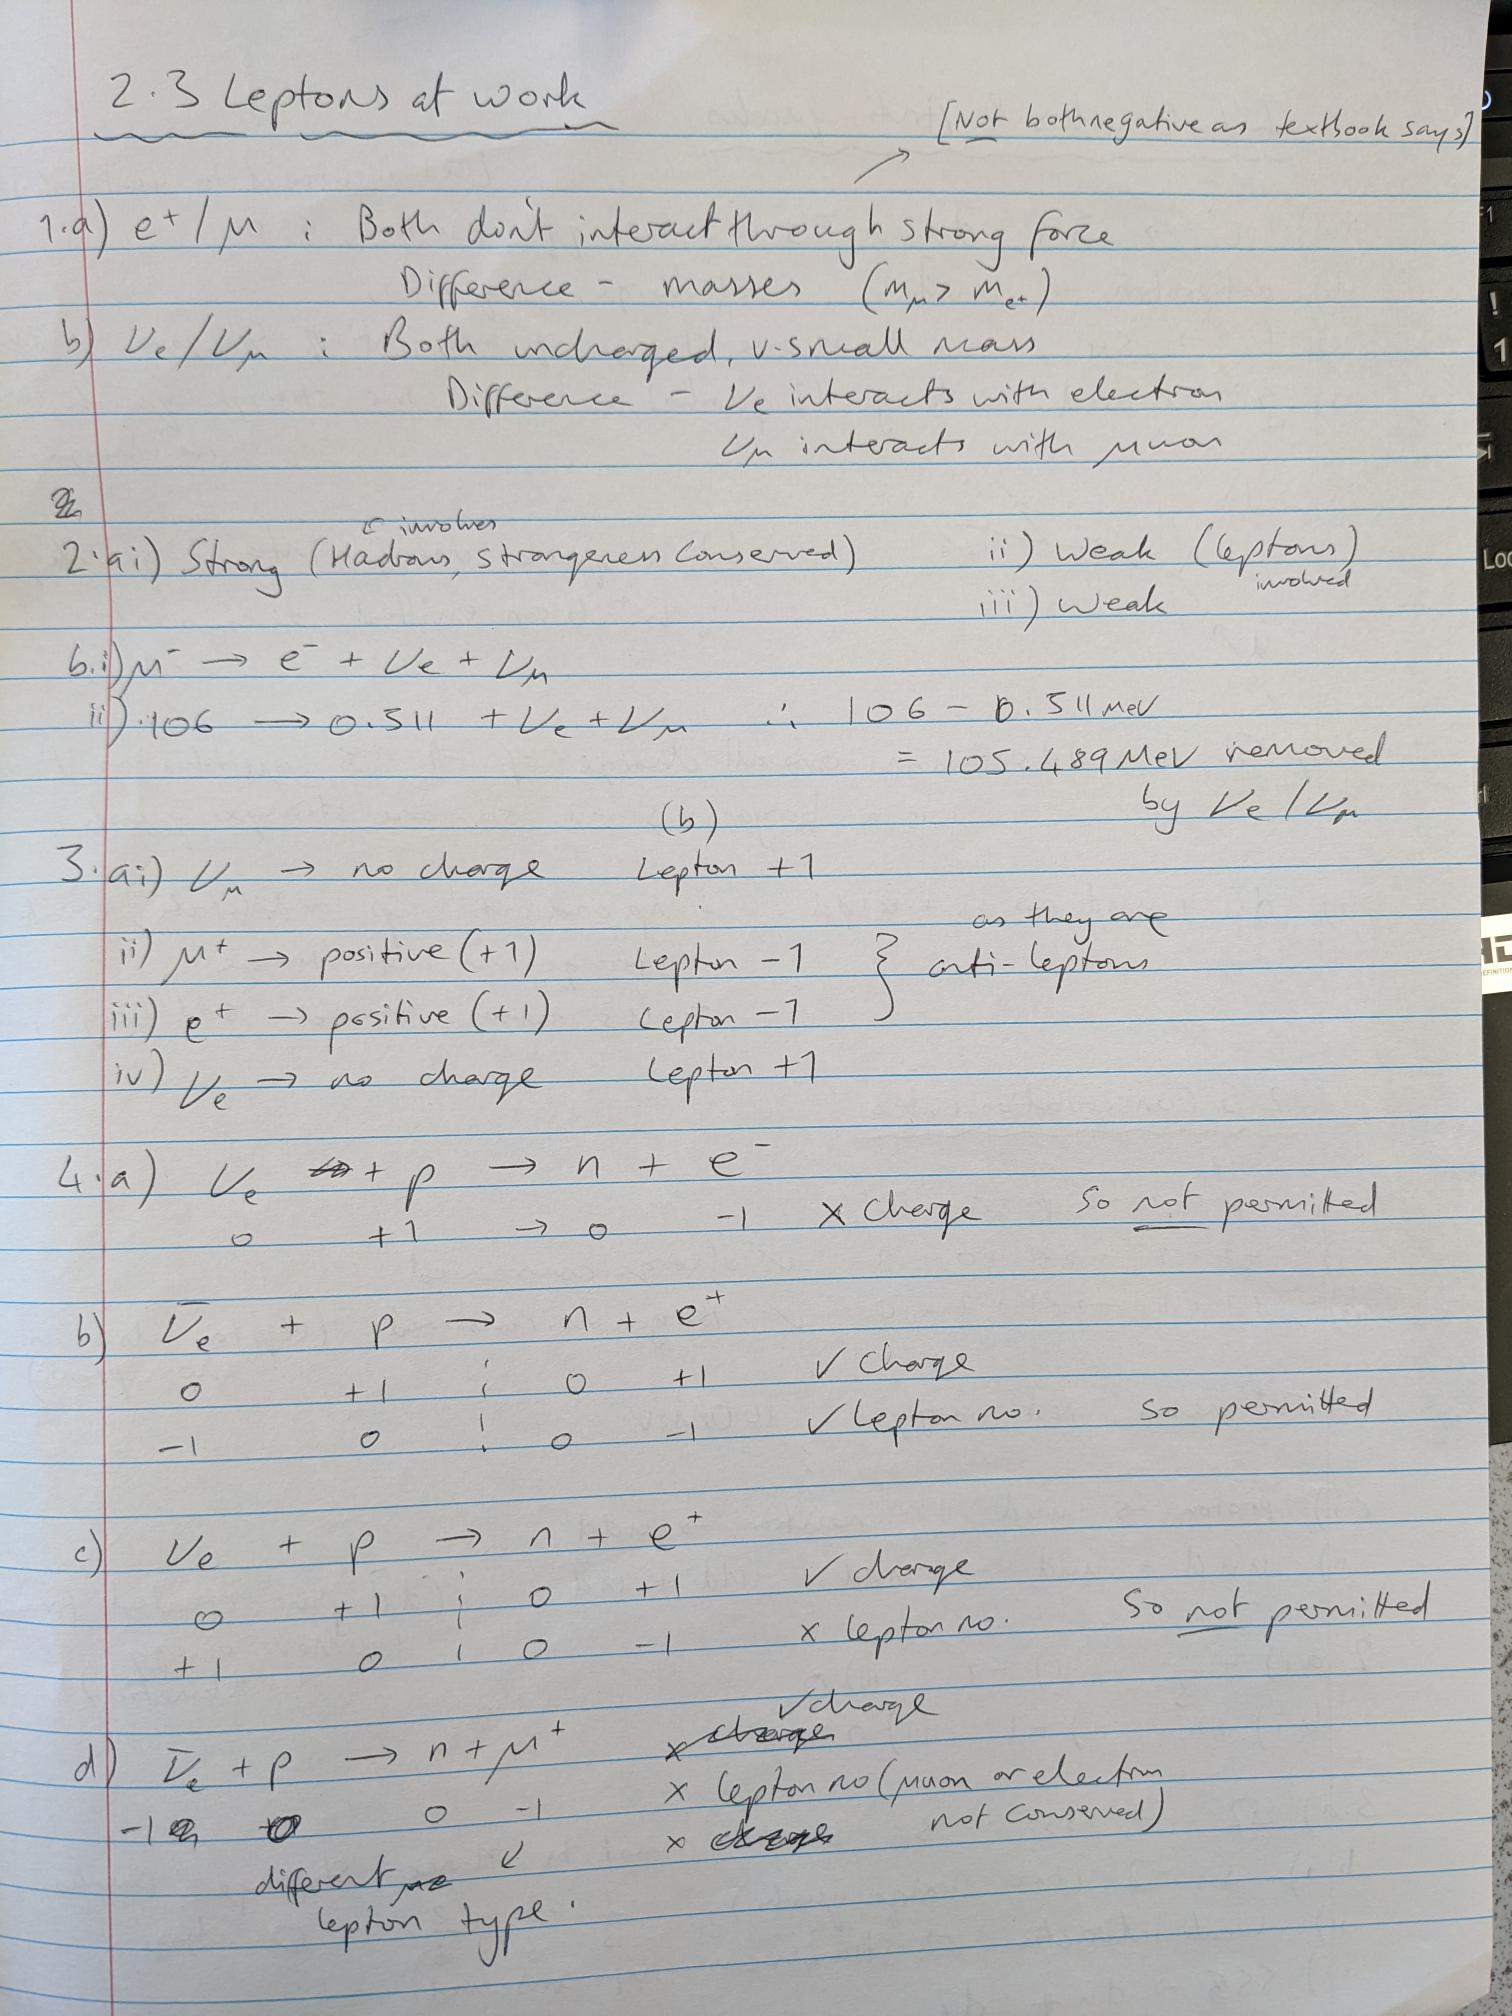 2.3 Leptons at work
[Not both negative as textbook says]
1.a) e⁺/μ : Both don't interact through strong force
Difference - masses (mμ > me+)
b) νe/νμ : Both uncharged, v.small mass
Difference - νe interacts with electron
νμ interacts with muon
involves
2.ai) Strong (Hadrons, strangeness conserved) ii) Weak (leptons)
involved
iii) Weak
b.i) μ⁻ → e⁻ + νe + νμ
ii) 106 → 0.511 + νe + νμ ∴ 106 - 0.511 MeV
= 105.489 MeV removed
by νe/νμ
(b)
3.ai) νμ → no charge Lepton +1
as they are
ii) μ⁺ → positive (+1) Lepton -1 } anti-leptons
iii) e⁺ → positive (+1) Lepton -1
iv) νe → no charge Lepton +1
4.a) νe + p → n + e⁻
0 +1 → 0 -1 x charge So not permitted
b) ν̄e + p → n + e⁺
0 +1 ¦ 0 +1 ✓ charge
-1 0 ¦ 0 -1 ✓ lepton no. so permitted
c) νe + p → n + e⁺
0 +1 ¦ 0 +1 ✓ charge
+1 0 ¦ 0 -1 x lepton no. So not permitted
✓ charge
d) ν̄e + p → n + μ⁺ x charge
-1 0 0 -1 x lepton no (muon or electron
not conserved)
x charge
different
lepton type.
! 1